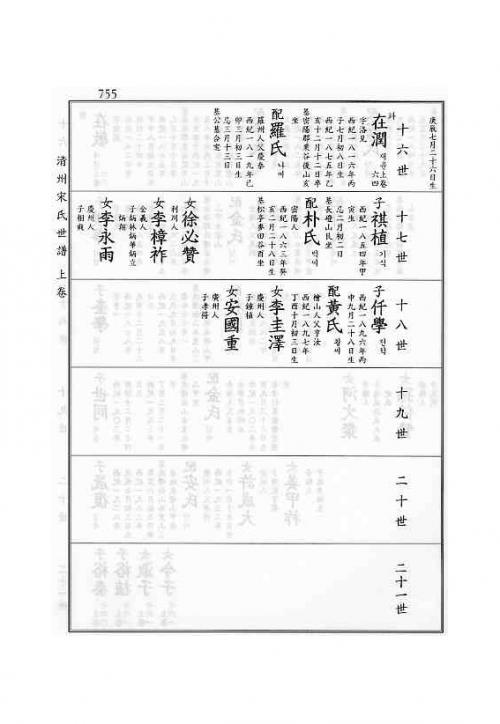 755
清州宋氏世譜 上卷
庚辰七月二十六日生
十六世
在潤 재윤上卷六四
字洛見
西紀一八一六年丙
子七月初八日生
西紀一八七五年乙
亥十二月十二日卒
墓密陽郡栗谷後山亥
坐
配羅氏 나씨
羅州人父慶泰
西紀一八一九年己
卯三月初三日生
忌三月十三日
墓公墓合窆
十七世
子祺植 기식
西紀一八五四年甲
寅生
忌二月初二日
墓長燈山艮坐
配朴氏 박씨
密陽人
西紀一八六三年癸
亥二月二十八日生
墓松亭麥田谷酉坐
女徐必贊
利川人
女李樟祚
全義人
子炳林炳華炳立
炳翔
女李永雨
慶州人
子相戟
十八世
子仟學 천학
西紀一八九六年丙
申九月二十八日生
配黃氏 황씨
檜山人父亨汝
西紀一八九七年
丁酉十月初三日生
女李圭澤
慶州人
子鍾植
女安國重
廣州人
子孝得
十九世
二十世
二十一世